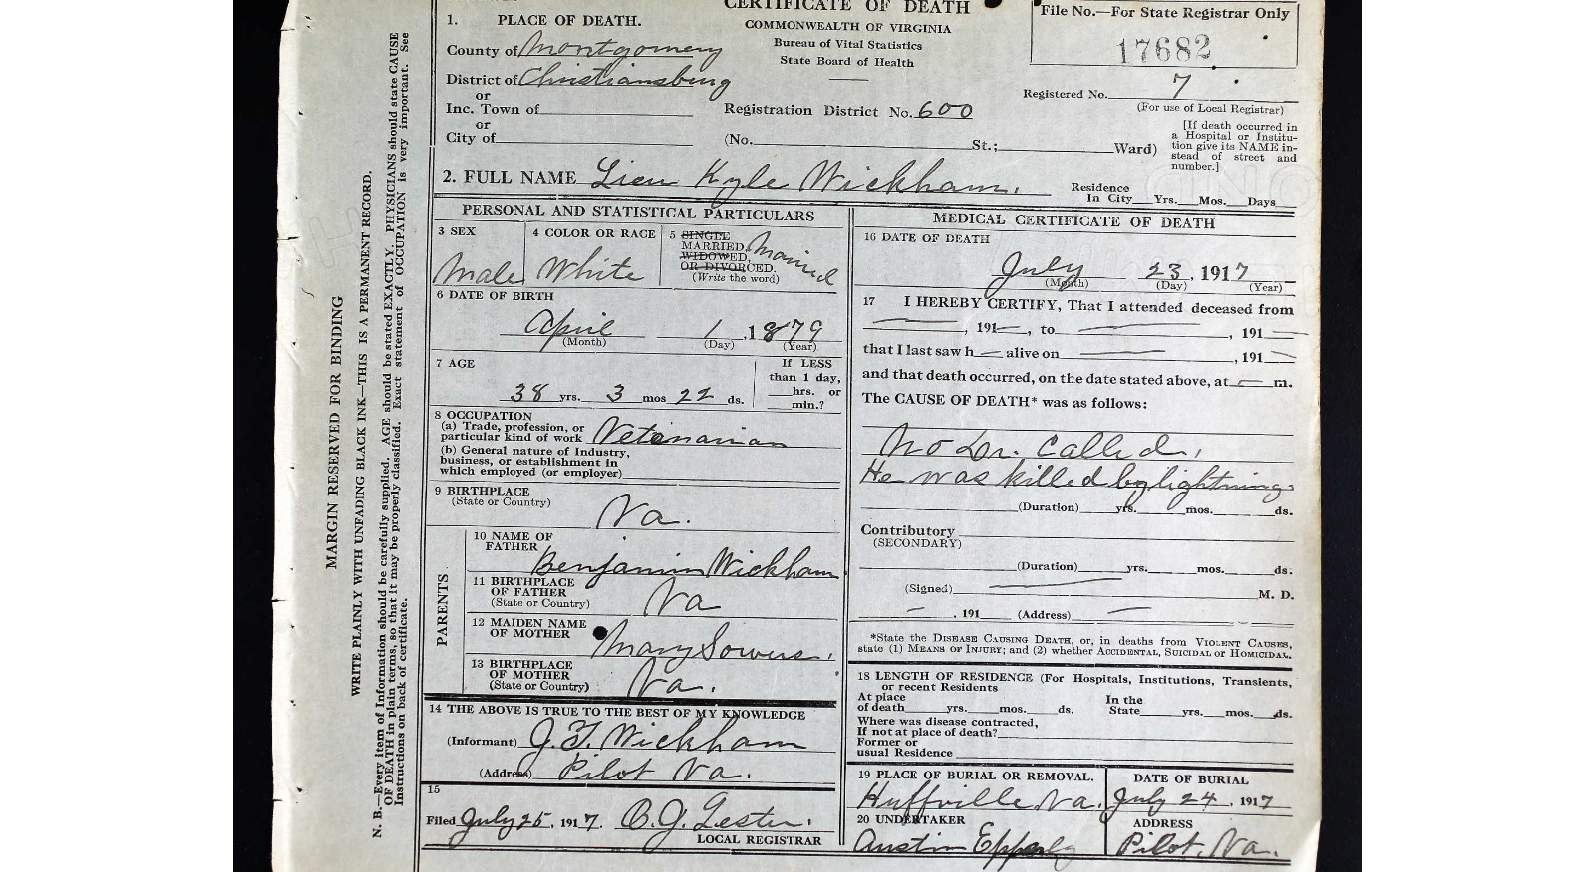 CERTIFICATE OF DEATH
COMMONWEALTH OF VIRGINIA
Bureau of Vital Statistics
State Board of Health
File No.—For State Registrar Only
17682
Registered No. 7
(For use of Local Registrar)
[If death occurred in
a Hospital or Institu-
tion give its NAME in-
stead of street and
number.]
1. PLACE OF DEATH.
County of Montgomery
District of Christiansburg
or
Inc. Town of
Registration District No. 600
or
City of (No. St.; Ward)
2. FULL NAME Lieu Kyle Wickham.
Residence
In City Yrs. Mos. Days
PERSONAL AND STATISTICAL PARTICULARS
3 SEX
Male
4 COLOR OR RACE
White
5 SINGLE
MARRIED,
WIDOWED,
OR DIVORCED.
(Write the word)
Married
6 DATE OF BIRTH
April 1, 1879
(Month) (Day) (Year)
7 AGE
38 yrs. 3 mos 22 ds.
If LESS
than 1 day,
hrs. or
min.?
8 OCCUPATION
(a) Trade, profession, or
particular kind of work Vetenarian
(b) General nature of Industry,
business, or establishment in
which employed (or employer)
9 BIRTHPLACE
(State or Country)
Va.
PARENTS
10 NAME OF
FATHER
Benjamin Wickham
11 BIRTHPLACE
OF FATHER
(State or Country)
Va
12 MAIDEN NAME
OF MOTHER
Mary Sowers.
13 BIRTHPLACE
OF MOTHER
(State or Country)
Va.
14 THE ABOVE IS TRUE TO THE BEST OF MY KNOWLEDGE
(Informant) J.T. Wickham
(Address) Pilot Va.
15
Filed July 25, 1917. O.J. Lester.
LOCAL REGISTRAR
MEDICAL CERTIFICATE OF DEATH
16 DATE OF DEATH
July 23, 1917
(Month) (Day) (Year)
17 I HEREBY CERTIFY, That I attended deceased from
, 191 , to , 191
that I last saw h alive on , 191
and that death occurred, on the date stated above, at m.
The CAUSE OF DEATH* was as follows:
No Dr. Called,
He was killed by lightning
(Duration) yrs. mos. ds.
Contributory
(SECONDARY)
(Duration) yrs. mos. ds.
(Signed) M. D.
, 191 (Address)
*State the DISEASE CAUSING DEATH, or, in deaths from VIOLENT CAUSES,
state (1) MEANS OF INJURY; and (2) whether ACCIDENTAL, SUICIDAL or HOMICIDAL.
18 LENGTH OF RESIDENCE (For Hospitals, Institutions, Transients,
or recent Residents
At place
of death yrs. mos. ds.
In the
State yrs. mos. ds.
Where was disease contracted,
If not at place of death?
Former or
usual Residence
19 PLACE OF BURIAL OR REMOVAL.
Huffville, Va.
DATE OF BURIAL
July 24, 1917
20 UNDERTAKER
Austin Epperly
ADDRESS
Pilot, Va.
MARGIN RESERVED FOR BINDING
WRITE PLAINLY WITH UNFADING BLACK INK—THIS IS A PERMANENT RECORD.
N. B.—Every item of Information should be carefully supplied. AGE should be stated EXACTLY. PHYSICIANS should state CAUSE
OF DEATH in plain terms, so that it may be properly classified. Exact statement of OCCUPATION is very important. See
Instructions on back of certificate.